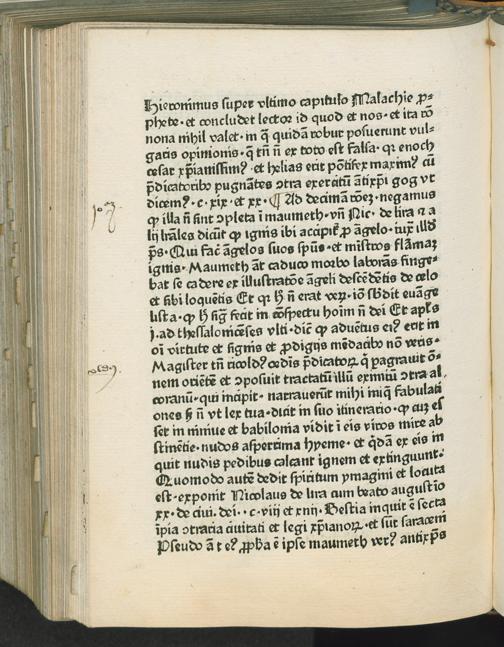 Hieronimus super vltimo capitulo Malachie ꝓ-
phete · et concludet lector id quod et nos · et ita rō
nona nihil valet · in q̄ quidā robur posuerunt vul-
garis opinionis · ꝙ tn̄ n̄ ex toto est falsa · qꝛ enoch
cesar xp̄ianissimꝰ et helias erit pōtifex maximꝰ cū
p̄dicatoribꝰ pugnātes ↄtra exercitū ātixp̄i gog vt
dicemꝰ · c · xix · et xx · ¶ Ad decimā rōeꝫ · negamus
ꝙ illa n̄ sint ↄpleta ī maumeth · vn̄ Nic · de lira ⁊ a
lij lr̄ales dicūt ꝙ ignis ibi accipit̄ ꝓ āgelo · iuxͭ illd̄
pˢ · Qui fac̄ āgelos suos sp̄us · et mīstros flāmaꝫ
ignis · Maumeth āt caduco morbo laborās finge-
bat se cadere ex illustratōe āgeli descēdētis de celo
et sibi loquētis Et qꝛ h̄ n̄ erat veꝝ · iō sb̄dit euāge
lista · ꝙ h̄ sig̅ fecit in cōspectu hoīm n̄ dei Et apl̄s
ī · ad thessalonicēses vlti · dic̄ ꝙ aduētus eiꝰ erit in
oī virtute et signis et ꝓdigijs mēdacibꝰ nō veris ·
Magister tn̄ ricoldꝰ ordīs p̄dicatoꝝ q̇ pagrauit ō-
nem oriētē et ↄposuit tractatū illū eximiū ↄtra al,
coranū · qui incipit · narrauerūt mihi iniq̄ fabulati
ones sꝫ n̄ vt lex tua · dicit in suo itinerario · ꝙ cuꝫ es
set in niniue et babilonia vidit ī eis viros mire ab
stinētie · nudos asperrima hyeme · et q̇dā ex eis in
quit nudis pedibus calcant ignem et extinguunt ·
Quomodo autē dedit spiritum ymagini et locuta
est · exponit Nicolaus de lira cum beato augustīo
xx · de ciui · dei · · c · viij et xnij · Bestia inquit ē secta
īpia ↄtraria ciuitati et legi xp̄ianoꝝ · et sūt saraceni
Pseudo ā ꝓp̄ha ē ipse maumeth verꝰ antixp̄s